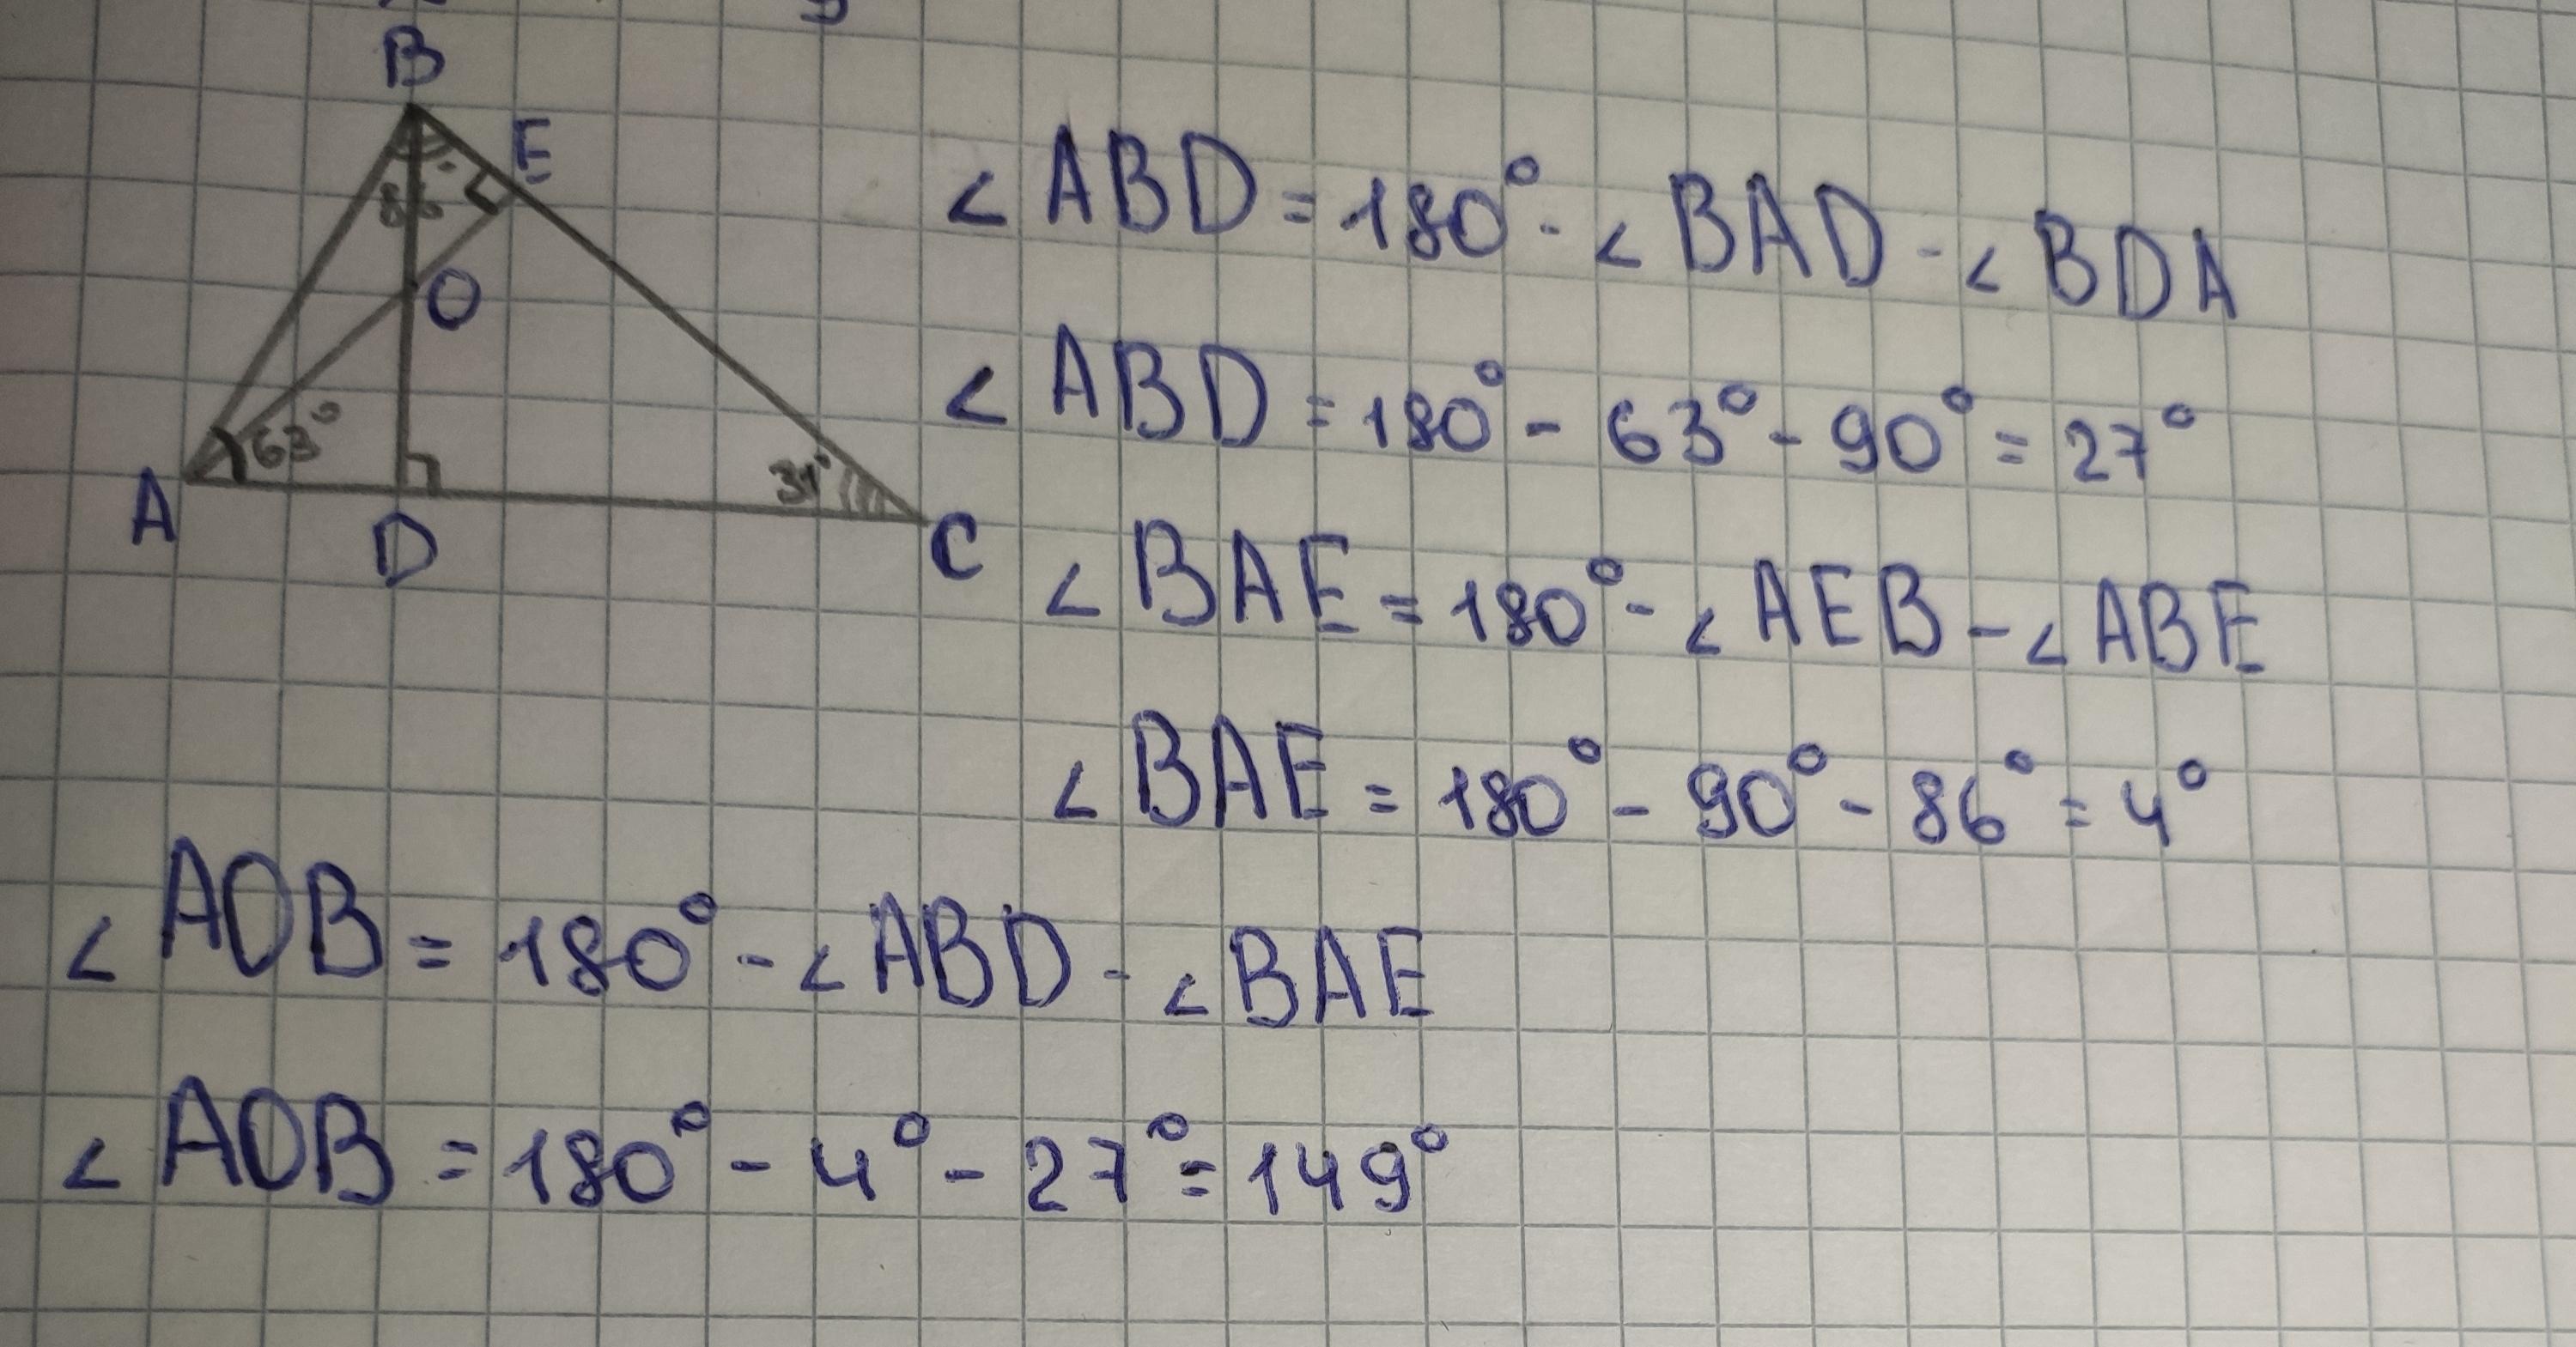 B
E
86
O
63°
31°
A
D
C
∠ ABD = 180° - ∠ BAD - ∠ BDA
∠ ABD = 180° - 63° - 90° = 27°
∠ BAE = 180° - ∠ AEB - ∠ ABE
∠ BAE = 180° - 90° - 86° = 4°
∠ AOB = 180° - ∠ ABD - ∠ BAE
∠ AOB = 180° - 4° - 27° = 149°